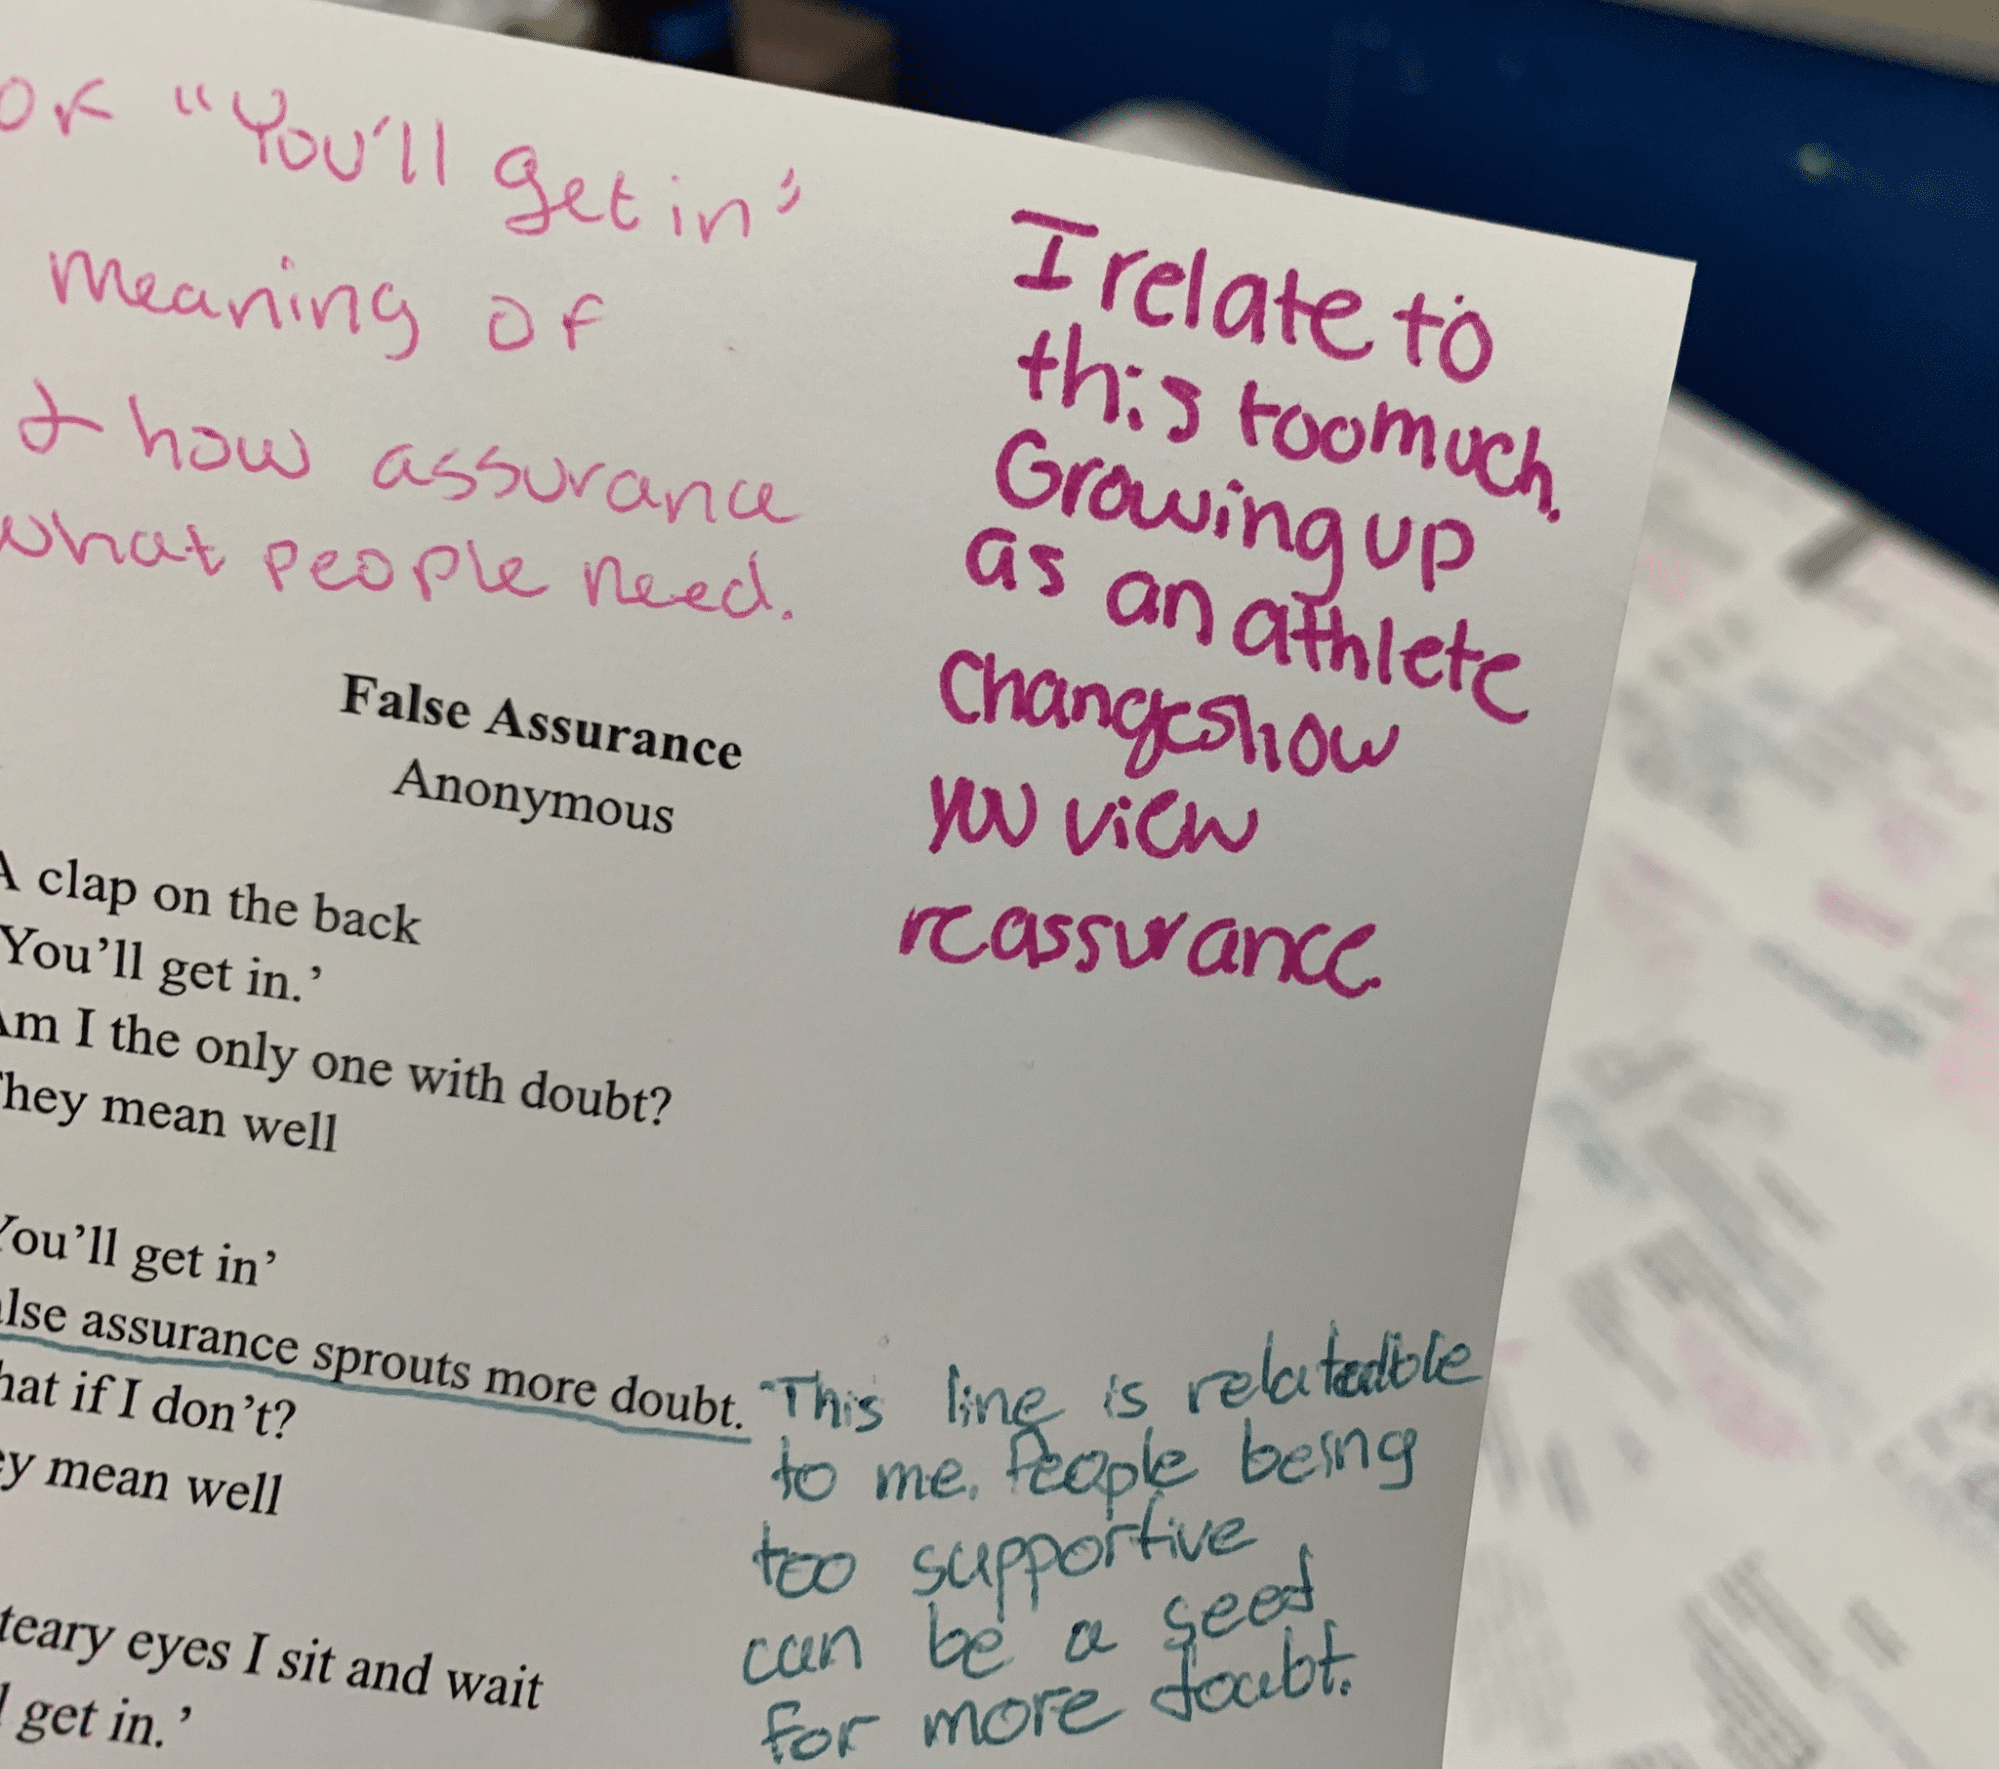 of "You'll get in"
meaning of
& how assurance
what people need.
I relate to
this too much.
Growing up
as an athlete
changes how
you view
reassurance.
False Assurance
Anonymous
A clap on the back
You'll get in.'
Am I the only one with doubt?
They mean well
You'll get in'
alse assurance sprouts more doubt.
hat if I don't?
ey mean well
teary eyes I sit and wait
l get in.'
This line is relatable
to me. People being
too supportive
can be a seed
for more doubt.